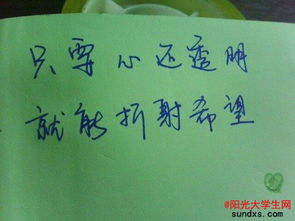 只要心还透明
就能折射希望
@阳光大学生网
sundxs.com